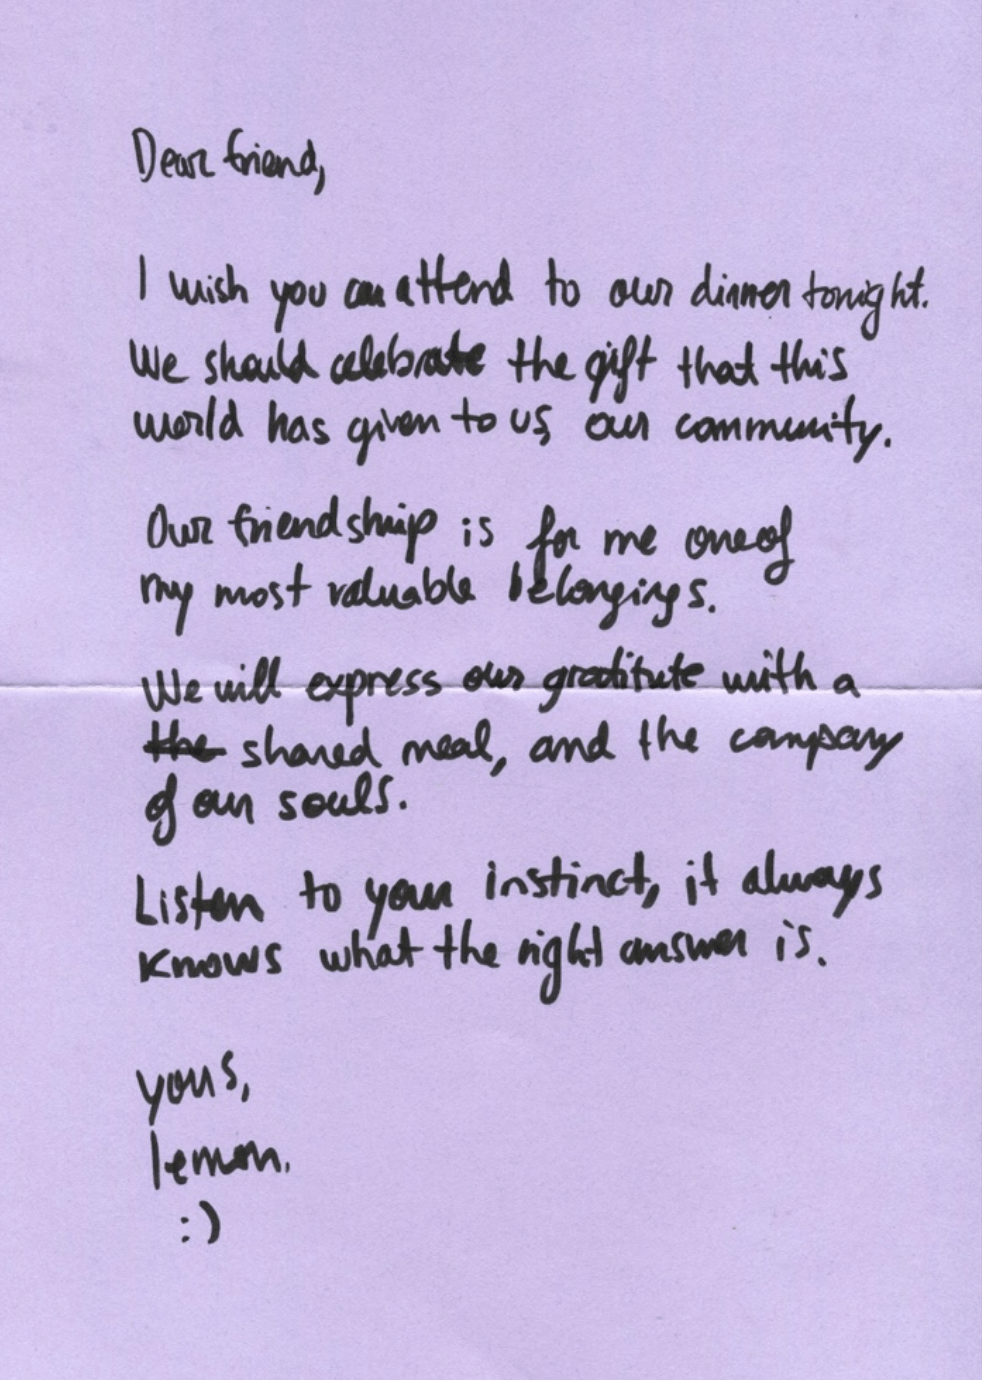 Dear friend,
I wish you can attend to our dinner tonight.
We should celebrate the gift that this
world has given to us, our community.
Our friendship is for me one of
my most valuable belongings.
We will express our gratitute with a
the shared meal, and the company
of our souls.
Listen to your instinct, it always
knows what the right answer is.
yours,
lemon.
:)